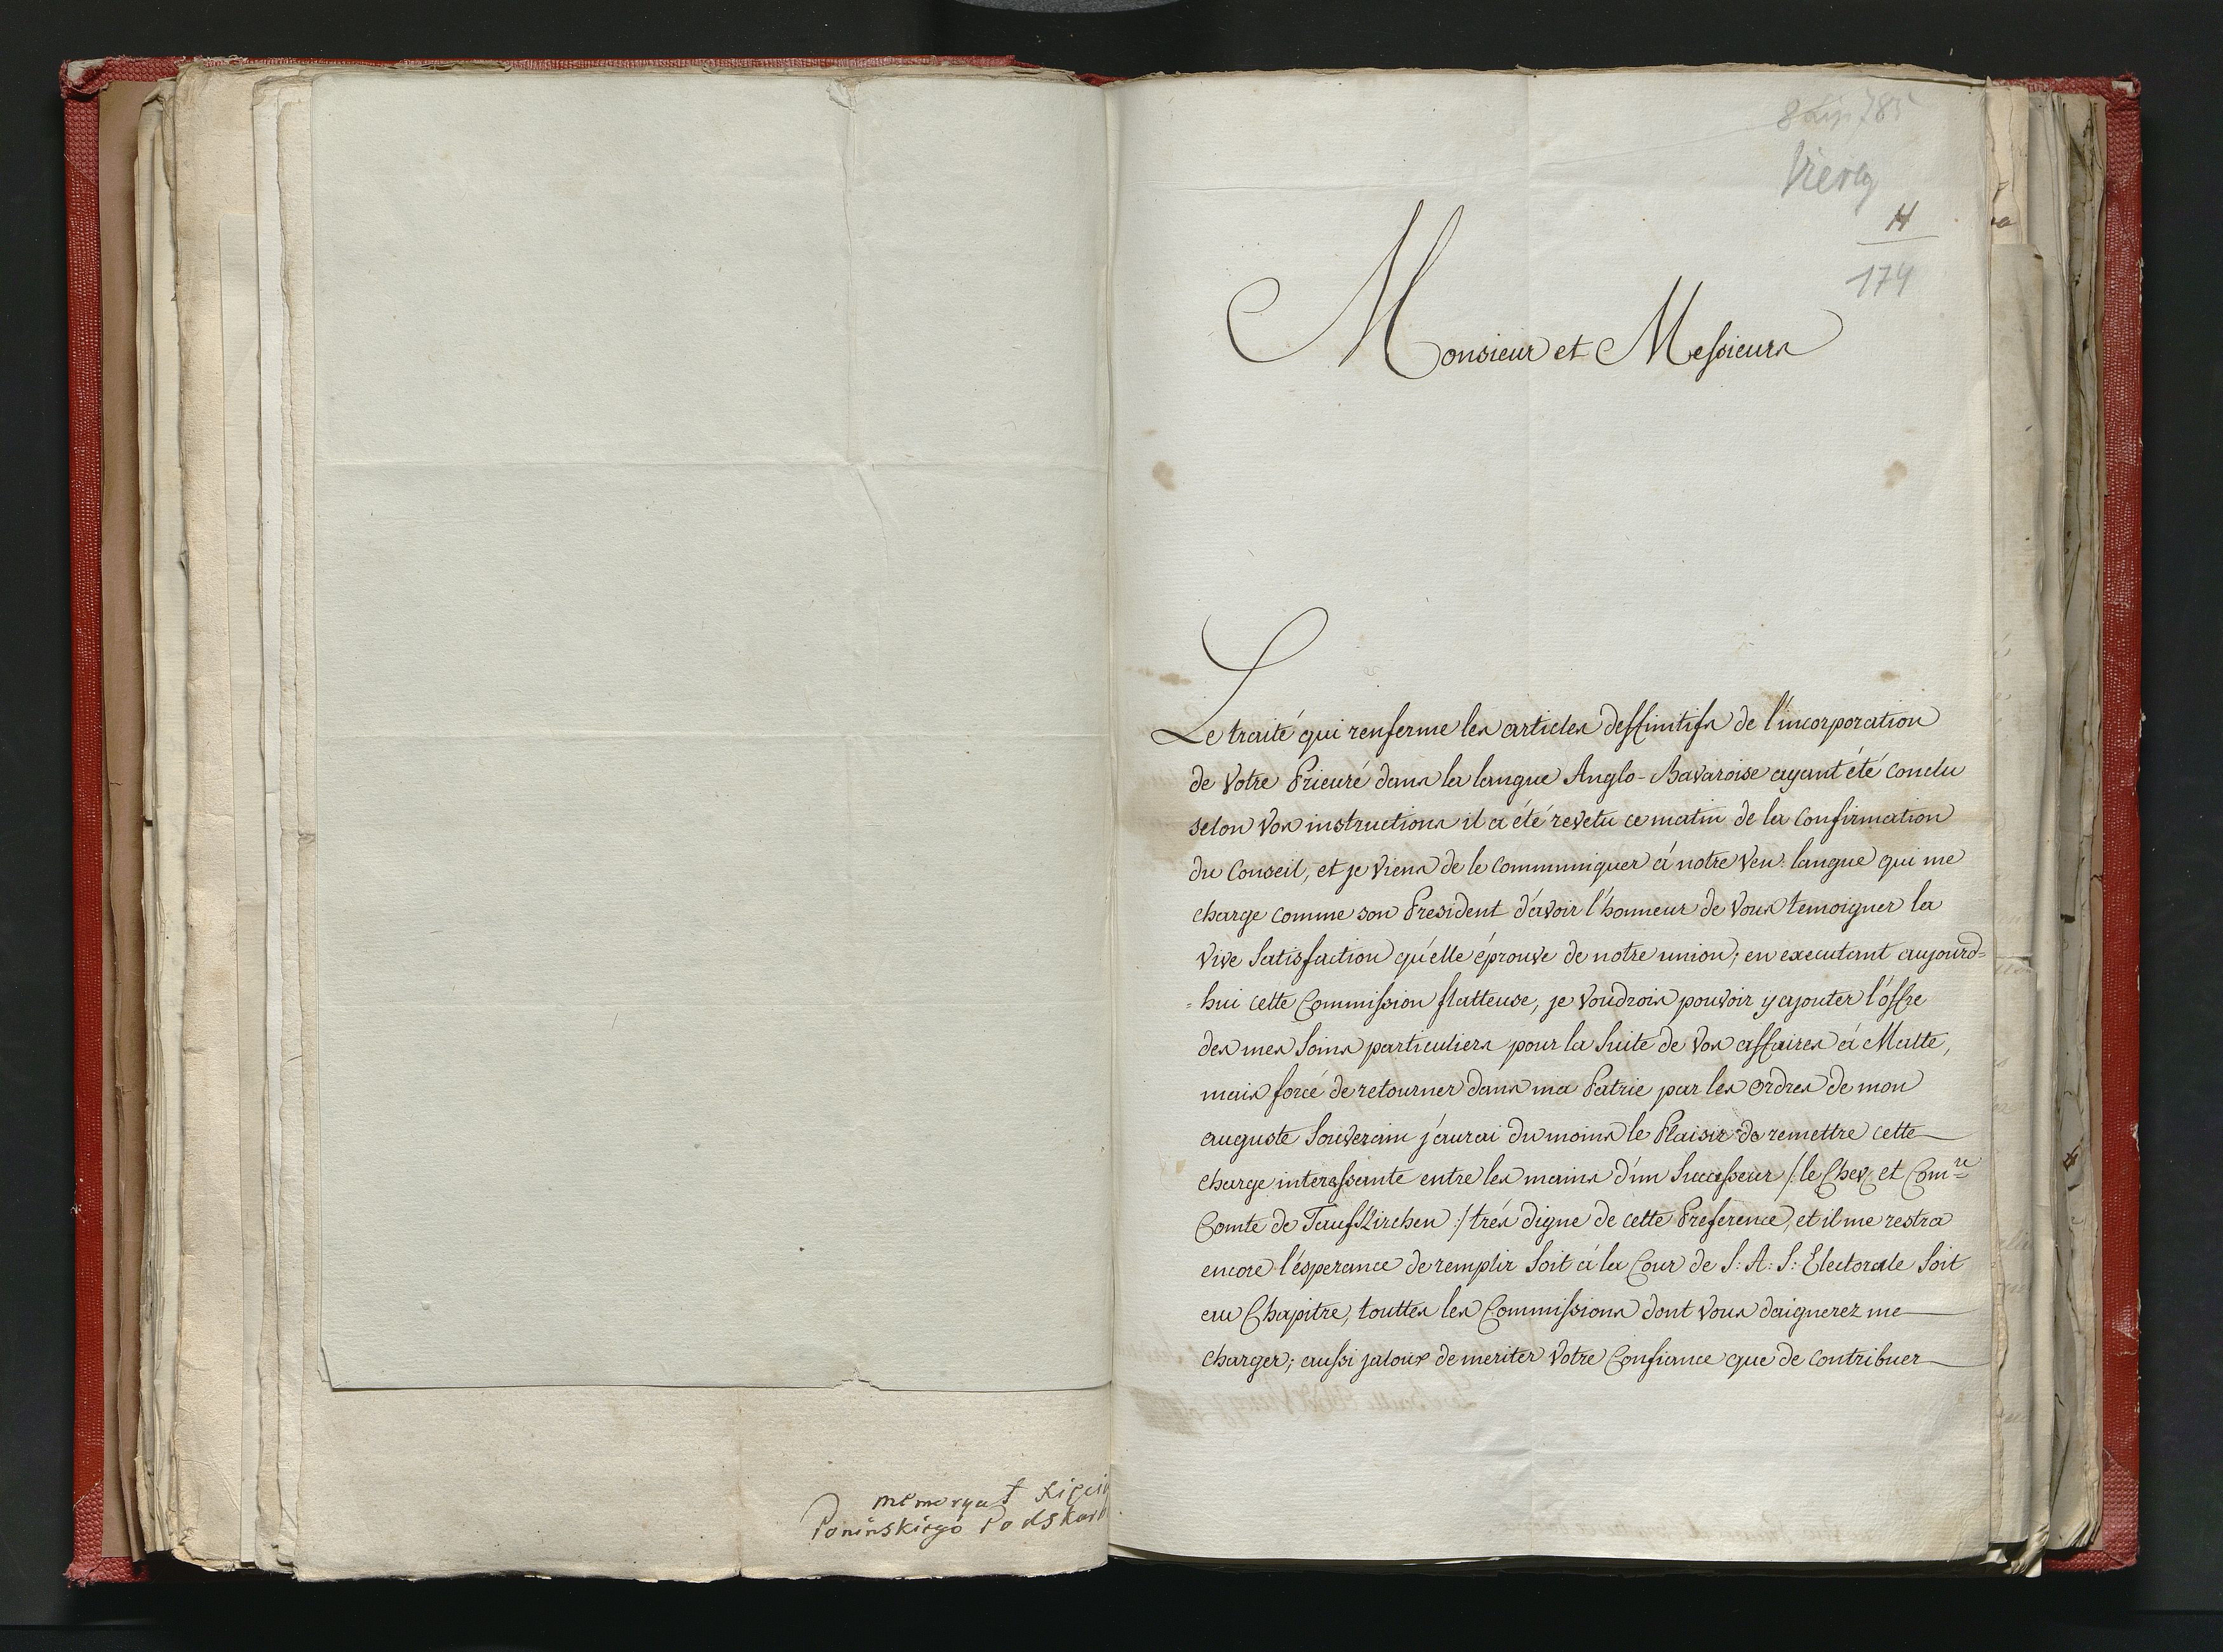 memoryał Xięcia
Poninskiego Podskar
785
Viereg
H
174
Monsieur et Messieurs
Le traité qui renferme les articles deffinitifs de l'incorporation
de Votre Prieuré dans la langue Anglo-Bavaroise ayant été conclu
selon Vos instructions il a été revetu ce matin de la Confirmation
du Conseil, et je Viens de le communiquer á notre Ven: langue qui me
charge comme son President d'avoir l'honneur de Vous temoigner la
Vive Satisfaction qu'elle éprouve de notre union; en executant aujourd=
=hui cette Commission flatteuse, je Voudrois pouvoir y ajouter l'offre
des mes Soins particuliers pour la Suite de Vos affaires á Malte,
mais forcé de retourner dans ma Patrie par les Ordres de mon
auguste Souverain j'aurai du moins le Plaisir de remettre cette
charge interessante entre les mains d'un Successeur /: le Chev. et Com:re
Comte de Taufskirchen :/ trés digne de cette Preference, et il me restra
encore l'ésperance de remplir Soit á la Cour de S: A: S: Electorale Soit
au Chapitre, touttes les Commissions dont Vous daignerez me
charger; aussi jaloux de meriter Votre Confiance que de contribuer